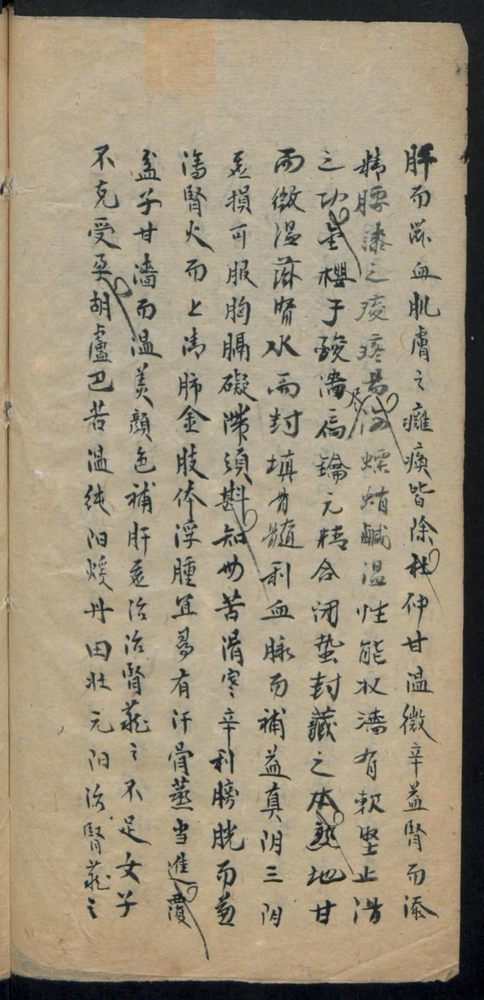 肝而滋血肌膚之癱瘓皆除杜仲甘溫微辛益腎而添
精腰膝之痠疼易治螵蛸鹹溫性能收濇有軟堅止
之功金櫻子酸濇扃鑰元精合闭蟄封藏之本熟地甘
而微溫滋腎水而封填骨髓利血脉而補益真阴三阴
損可服胸膈礙滯須斟知母苦滑寒辛利膀胱而
瀉腎火而上清肺金肢体浮腫宜有汗骨蒸当進覆
盆子甘濇而溫美顏色補肝治腎之不足女子
不克受孕胡盧巴苦溫纯阳煖丹田壮元阳治腎之